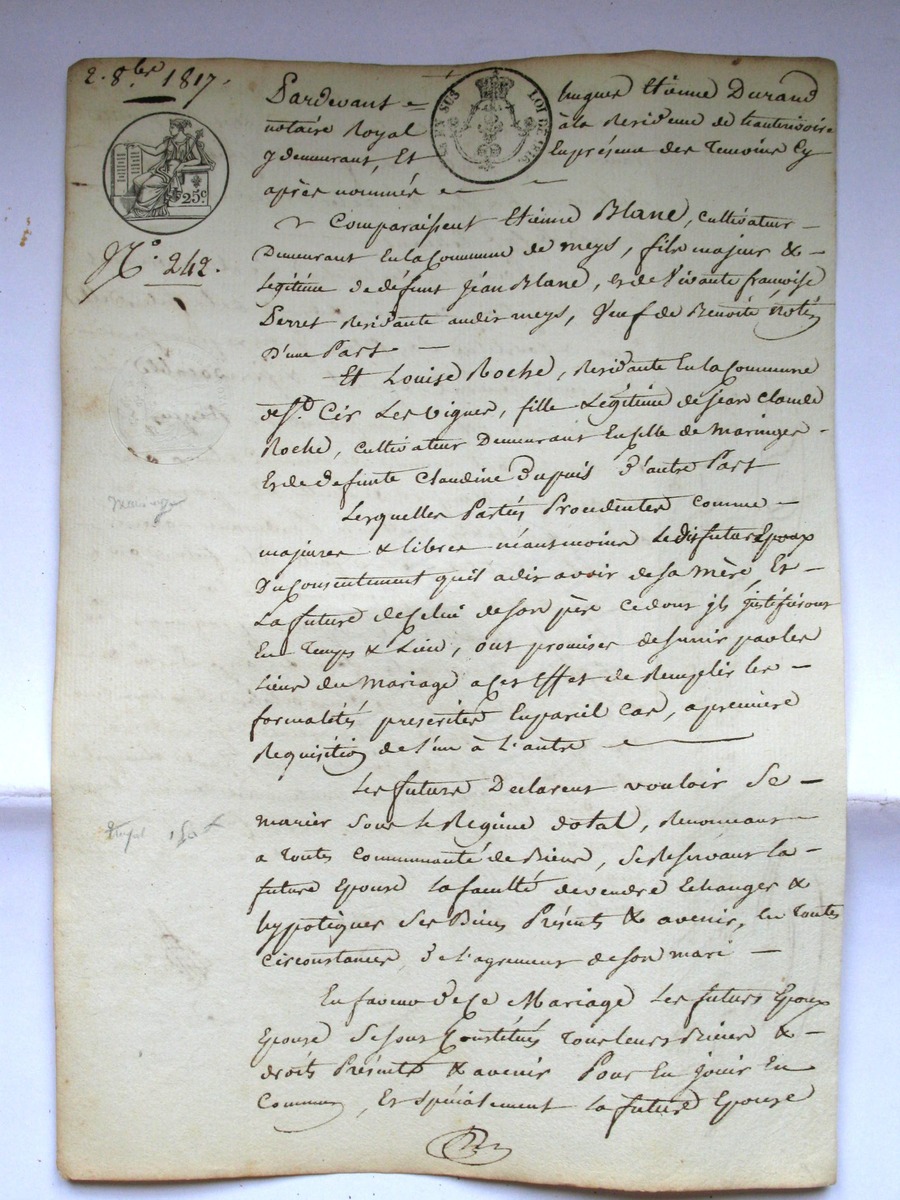 2. 8.bre 1817.
Pardevant hugues Etienne Durand
notaire Royal à la Residence de hauterivoire
y demeurant, Et En présence des Temoins Cy
après nommés
LOI DE 1816
25c
N.o 242.
Comparaissent Etienne Blanc, cultivateur
Demeurant En la Commune de meys, fils majeur &
Légitime de défunt Jean Blanc, et de Vivante françoise
Perret Residante audit meys, Veuf de Benoite
D'une Part
Et Louise Roche, Residante En la Commune
de St. Cir Les Vignes, fille Légitime de Jean Claude
Roche, cultivateur Demeurant En Celle de Maringes
Et de defunte Claudine Dupuis D'autre Part
Lesquelles Parties Procedentes comme
majeures & libres néantmoins Ledit futur Epoux
Du Consentement qu'il a dit avoir de sa mère, Et
La future de Celui de son père ce dont ils justifieront
En Temps & Lieu, ont promises de s'unir par les
Liens du Mariage a Cet Effet de Remplir les
formalités prescrites En pareil Cas, a première
Requisition de L'un à L'autre
Les futurs Declarent vouloir Se
marier Sous Le Régime dotal, Renonceant
a Toutes Communauté de Biens, Se Reservant La
future Epouse La faculté de vendre Echanger &
hypotiquer Ses Biens Présents & avenir, En Toutes
Circonstances De L'agrement de Son mari
En faveur de Ce Mariage Les futurs Epoux
Epouse Se Sont Constitués Tous leurs Biens &
droits Présents & avenir Pour En jouir En
Commun, Et spécialement La future Epouse